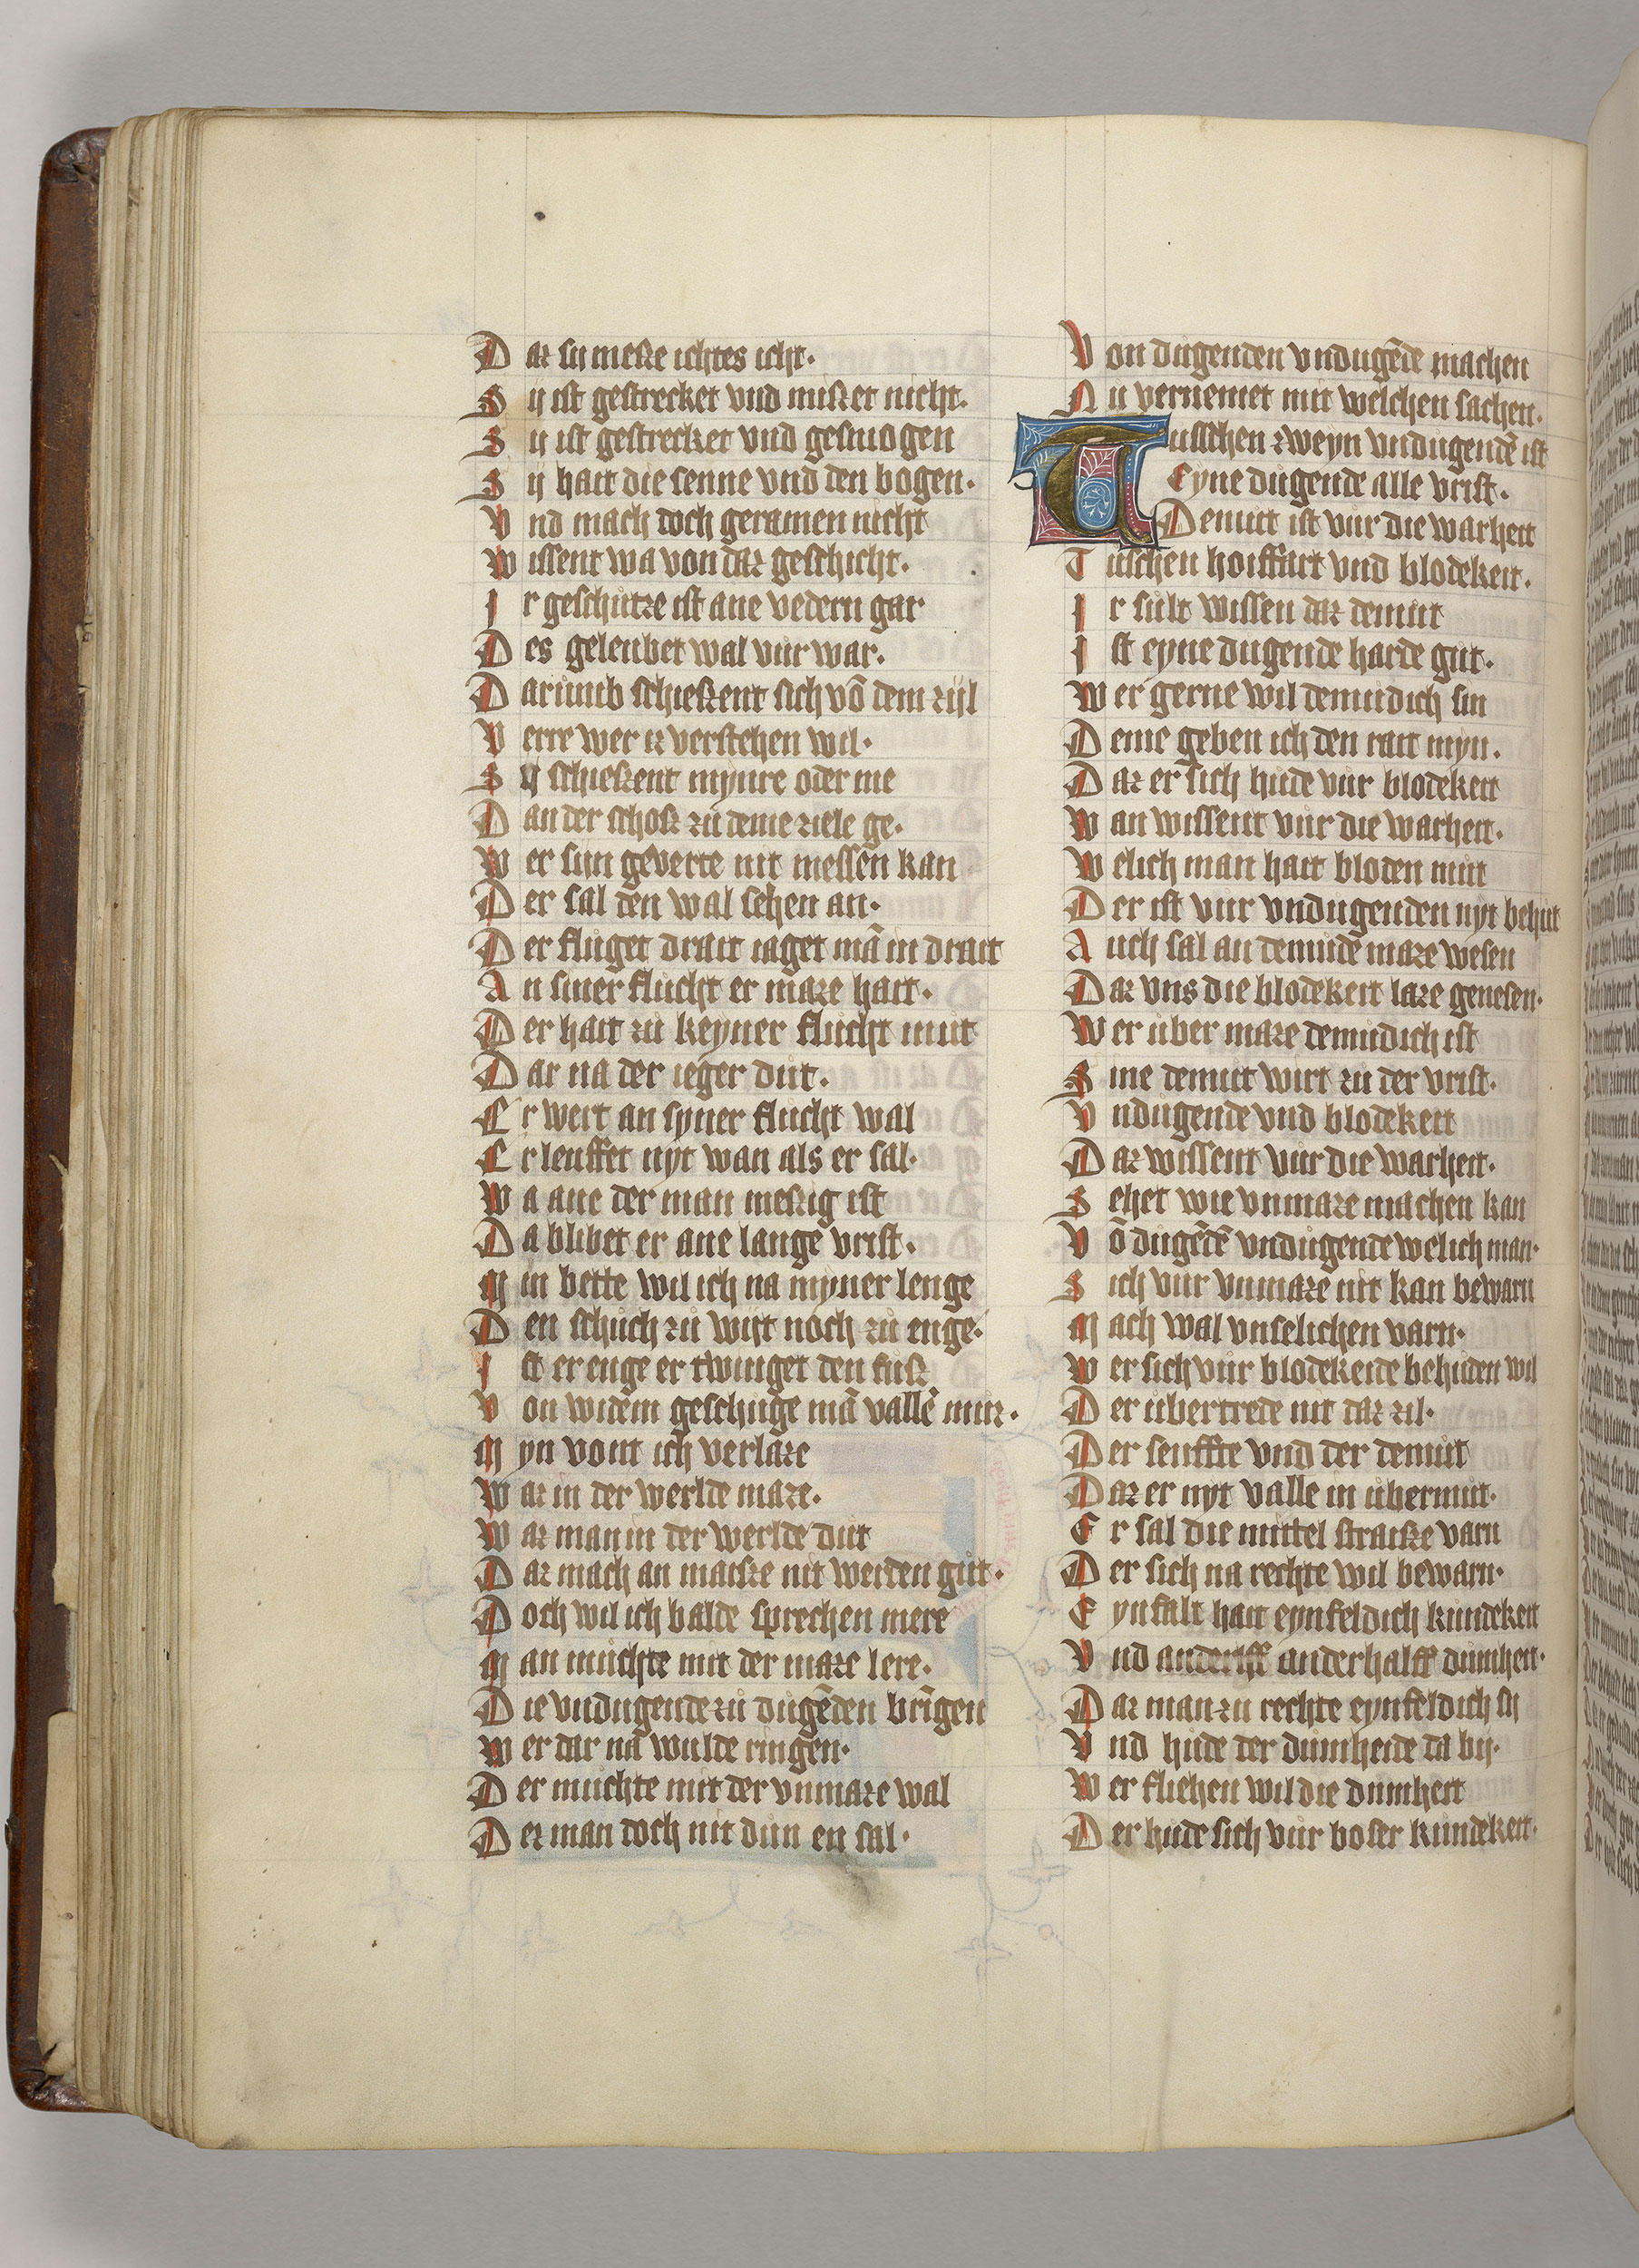 Daz sij meße ichtes icht·
Sij ist gestrecket vnd mißet nicht·
Sij ist gestrecket vnd gesmogen
Sij hait die senne vnd den bogen·
Vnd mach doch geramen nicht
Wissent wa von daz geschicht·
Ir geschutze ist ane vedern gar
Des geleubet wal vur war·
Darumb schießent sich vō dem zijl
Verre wer iz verstehen wil·
Sij schießent mynre oder me
Dan der schoß zu deme ziele ge·
Wer sijn geverte nit messen kan
Der sal den wal sehen an·
Der fluget drait iaget mā in drait
An siner flucht er maze hait·
Der hait zu keyner flucht mut
Dar na der ieger dut·
Er wert an syner flucht wal
Er leuffet nyt wan als er sal·
Wa ane der man meßig ist
Da blibet er ane lange vrist·
Min bette wil ich na myner lenge
Den schuch zu wijt noch zu enge·
Ist er enge er twinget den fuß
Von widem geschuge mā vallē muz·
Myn vont ich verlaze
Waz in der werlde maze·
Waz man in der werlde dut
Daz mach an maisze nit werden gut·
Doch wil ich balde sprechen mere
Man muchte mit der maze lere·
Die vndugende zu dugēden brīgen
Wer dar na wulde ringen·
Der muchte mit der vnmaze wal
Dez man doch nit dun en sal·
Von dugenden vndugēde machen
Nu vernemet mit welchen sachen·
Tusschen zweyn vndugendē ist
Eyne dugende alle vrist·
Demut ist vur die warheit
Tuschen hoiffart vnd blodekeit·
Ir sult wissen daz demut
Ist eyne dugende harde gut·
Wer gerne wil demudich sin
Deme geben ich den rait myn·
Daz er sich hude vur blodekeit
Wan wissent vur die warheit·
Welich man hait bloden mut
Der ist vur vndugenden nyt behut
Auch sal an demude maze wesen
Daz vns die blodekeit laze genesen·
Wer uber maze demudich ist
Sine demut wirt zu der vrist·
Vndugende vnd blodekeit
Daz wissent vur die warheit·
Sehet wie vnmaze machen kan
Vō dugēdē vndugende welich man·
Sich vur vnmaze nit kan bewarn
Mach wal vnselichen varn·
Wer sich vur blodekeide behuden wil
Der ubertrede nit daz zil·
Der senffte vnd der demut
Daz er nyt valle in ubermut·
Er sal die mittel straiße varn
Der sich na rechte wil bewarn·
Eynfalt hait eynfeldich kundekeit
Vnd anderhalff dumheit·
Daz man zu rechte eynfeldich sij
Vnd hude der dumheide da bij·
Wer fliehen wil die dumheit
Der hude sich vur boser kundekeit·